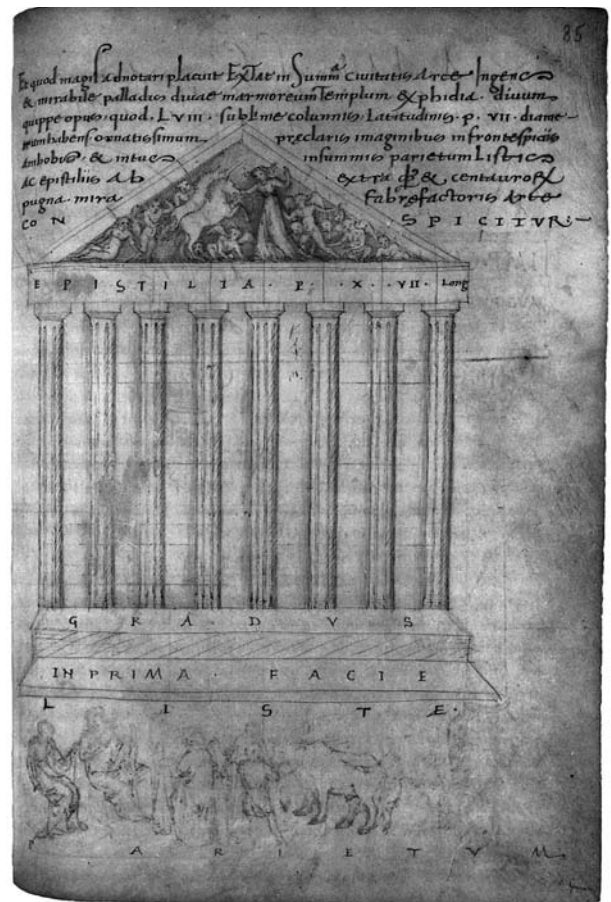 85
Et quod magis adnotari placuit Extat in Summa civitatis Arce Ingens
& mirabile palladis divae marmoreum Templum ex phidia. divum
quippe opus. quod. LVIII. sublime columnis. Latitudinis. p. VII. diame-
trum habens. ornatissimum preclaris imaginibus in frontespiciis
Ambobus. & intus in summis parietum Listis
AC epistiliis Ab extra & centauroR
pugna. mira Fabrefactoris Arte
CON SPICITVR:-
EPISTILIA. P. X. VII. Long
GRADVS
IN PRIMA. FACIE
LISTÆ.
PARIETVM